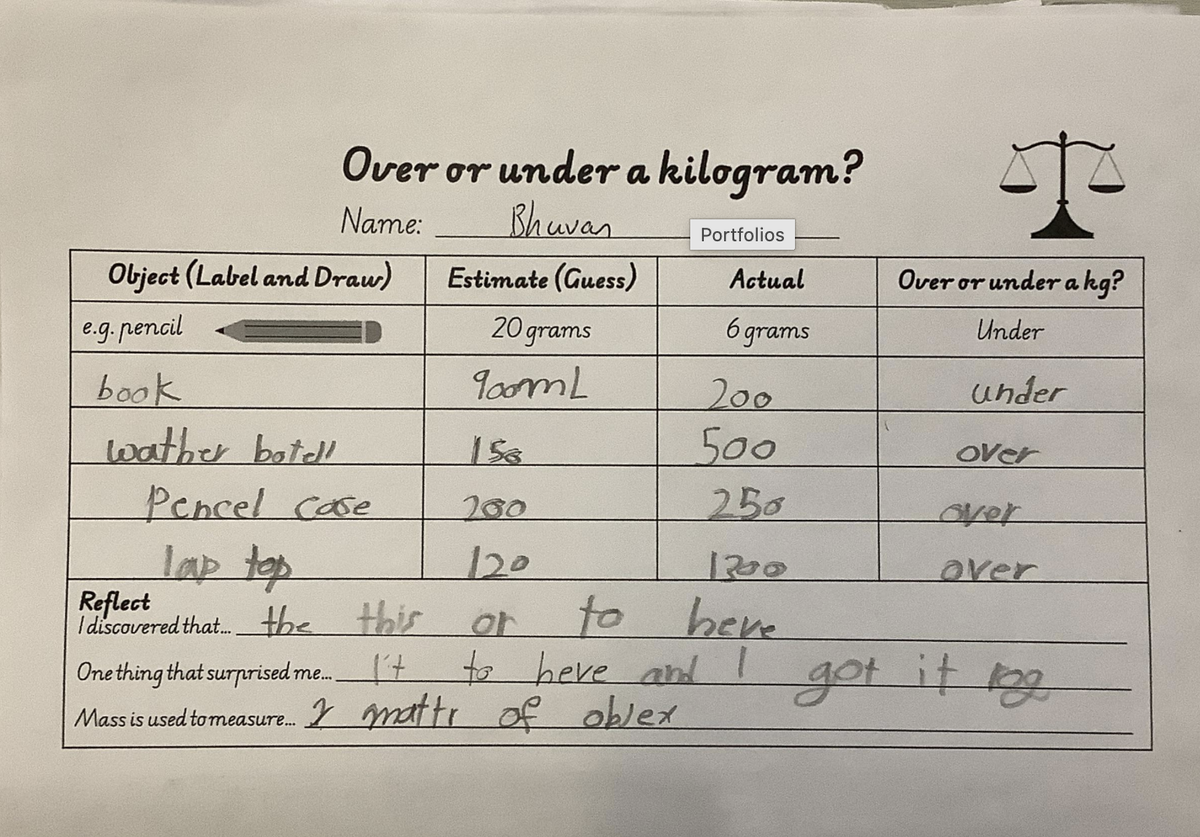 Over or under a kilogram?
Name: Bhuvan
Portfolios
Object (Label and Draw) Estimate (Guess) Actual Over or under a kg?
e.g. pencil 20 grams 6 grams Under
book 900mL 200 under
wather botell 150 500 over
Pencel case 200 250 over
lap top 120 1300 over
Reflect
I discovered that... the this or to heve
One thing that surprised me... I't to heve and I got it
Mass is used to measure... mattr of objex